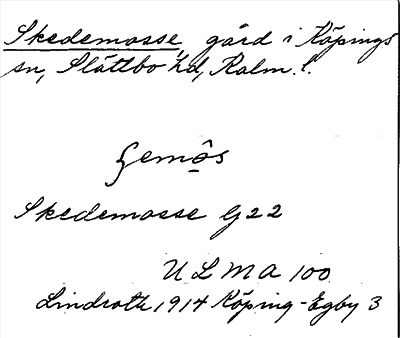 Skedemosse, gård i Köpings
sn, Slättbo hd, Kalm. l.
Skedemosse G 22
ULMA 100
Lindroth 1914 Köping-Egby 3